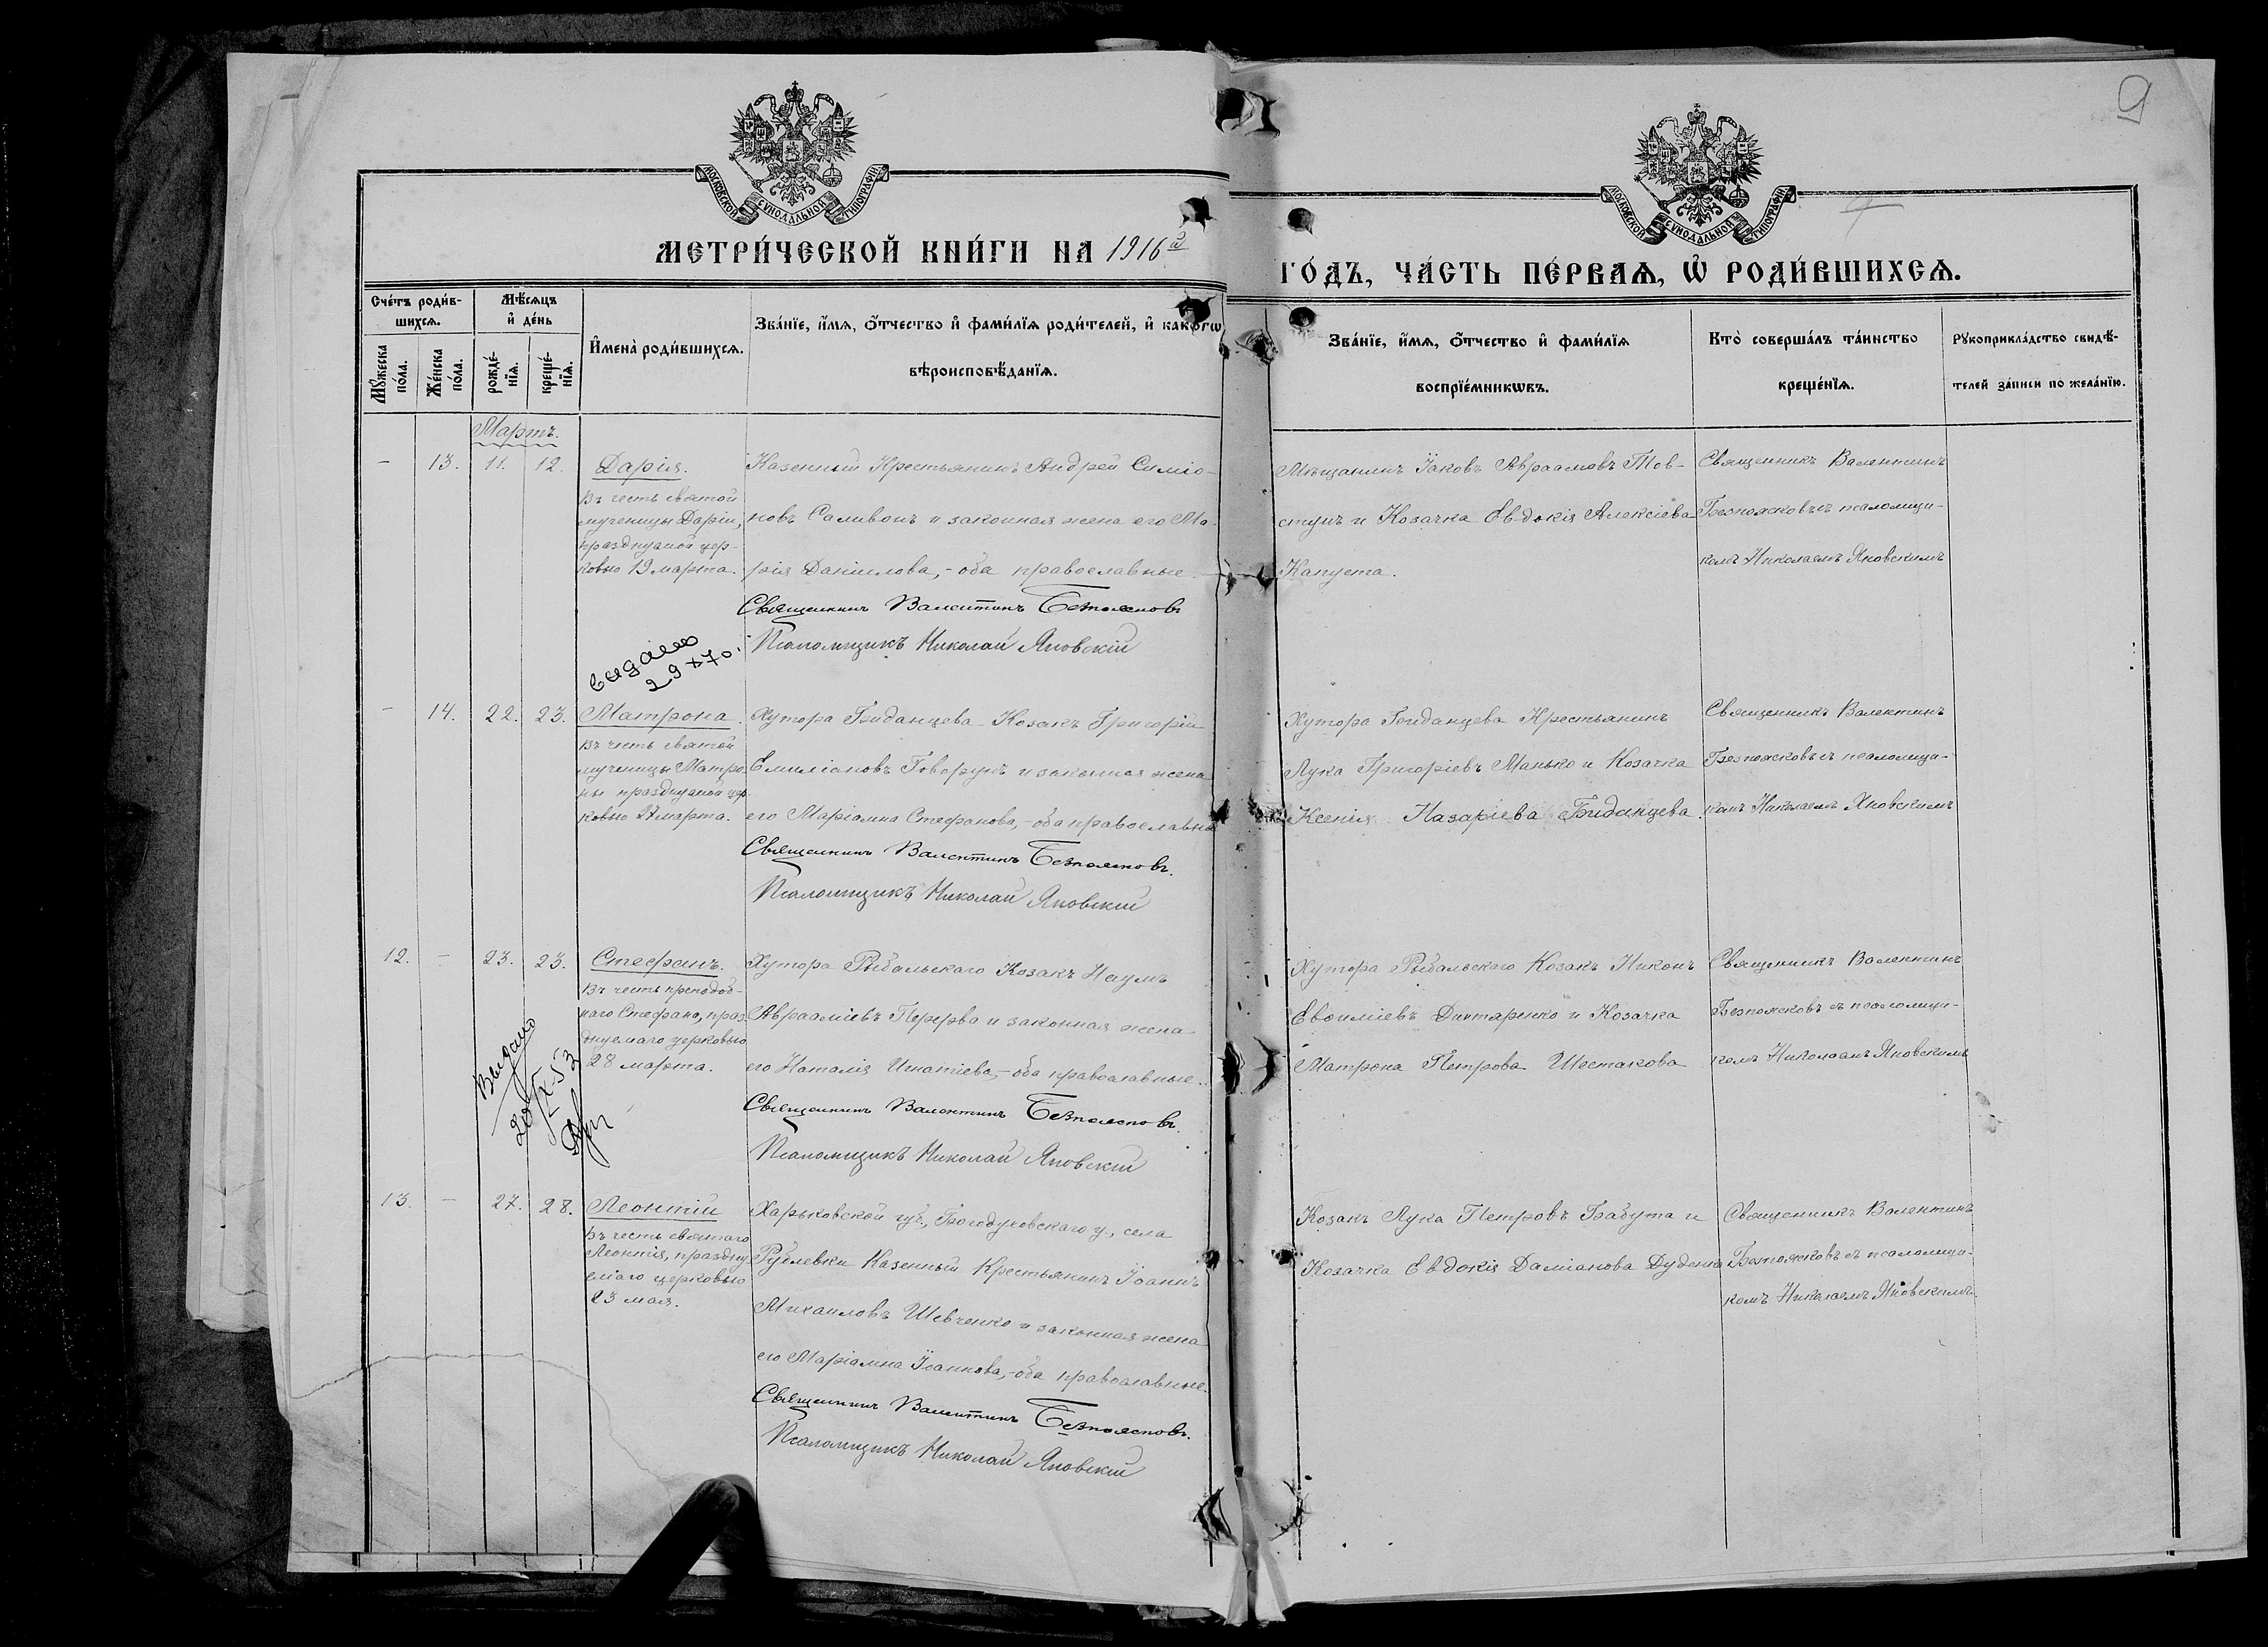 9
МОСКОВСКОЙ СУНОДАЛЬНОЙ ТИПОГРАФІИ
МОСКОВСКОЙ СУНОДАЛЬНОЙ ТИПОГРАФІИ
МЕТРИ́ЧЕСКОЙ КНИ́ГИ НА 1916й
ГО́ДЪ, ЧА́СТЬ ПЕ́РВАѦ, Ѽ РОДИ́ВШИХСѦ.
Сче́тъ роди́в-
шихсѧ.
Мѣ́сѧцъ
и҆ де́нь
Мꙋ́жеска
по́ла.
Же́нска
по́ла.
рожде́-
нїѧ.
креще́-
нїѧ.
И҆мена̀ роди́вшихсѧ.
Зва́нїе, и҆́мѧ, ѻ҆́тчество и҆ фами́лїѧ роди́телей, и҆ како́гѡ
вѣроисповѣ́данїѧ.
Зва́нїе, и҆́мѧ, ѻ҆́тчество и҆ фами́лїѧ
воспрїе́мникѡвъ.
Кто̀ соверша́лъ та́инство
креще́нїѧ.
Рꙋкоприкла́дство свидѣ́-
телей за́писи по жела́нїю.
Мартъ.
- 13. 11. 12. Дарія.
Въ честь святой
мученицы Даріи,
празднуемой цер-
ковью 19 марта.
Казенный Крестьянинъ Андрей Симіо-
новъ Саливонъ и законная жена его Ма-
рія Даніилова,- оба православные
Священникъ Валентинъ Безпоясковъ
Псаломщикъ Николай Яновскій
Мѣщанинъ Іаковъ Авраамовъ Тов-
стунъ и Козачка Евдокія Алексіева
Капуста.
Священникъ Валентинъ
Безпоясковъ съ псаломщи-
комъ Николаемъ Яновскимъ
видано
29 X 70.
- 14. 22. 23. Матрона.
Въ честь святой
мученицы Матро-
ны празднуемой цер-
ковью 27 марта.
Хутора Гриданцева Козакъ Григорій
Емиліановъ Говорунъ и законная жена
его Маріамна Стефанова,- оба православные
Священникъ Валентинъ Безпоясковъ.
Псаломщикъ Николай Яновскій
Хутора Крестьянинъ
Лука Григоріевъ Манько и Козачка
Ксенія Назаріева
Священникъ Валентинъ
Безпоясковъ съ псаломщи-
комъ Николаемъ Яновскимъ
12. - 23. 23. Стефанъ.
Въ честь преподоб-
наго Стефана, праз-
днуемаго церковью
28 марта.
Хутора Рыбальскаго Козакъ Наумъ
Авраміевъ Перерва и законная жена
его Наталія Игнатіева,- оба православные.
Священникъ Валентинъ Безпоясковъ.
Псаломщикъ Николай Яновскій
Хутора Рыбальскаго Козакъ Никонъ
Евѳиміевъ Дихтяренко и Козачка
Матрона Петрова Шестакова
Священникъ Валентинъ
Безпоясковъ съ псаломщи-
комъ Николаемъ Яновскимъ
Выдано
13. - 27. 28. Леонтій
Въ честь святаго
Леонтія, праздну-
емаго церковью
23 мая.
Харьковской губ., Богодуховскаго у., села
Рублевки Казенный Крестьянинъ Іоаннъ
Михаиловъ Шевченко и законная жена
его Маріамна Іоаннова,- оба православные.
Священникъ Валентинъ Безпоясковъ.
Псаломщикъ Николай Яновскій
Козакъ Лука Петровъ Бабута и
Козачка Евдокія Даміанова
Священникъ Валентинъ
Безпоясковъ съ псаломщи-
комъ Николаемъ Яновскимъ.